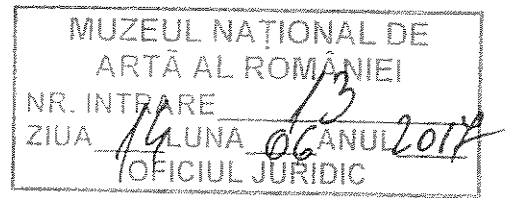 MUZEUL NAȚIONAL DE
ARTĂ AL ROMÂNIEI
NR. INTRARE 13
ZIUA 14 LUNA 06 ANUL 2017
OFICIUL JURIDIC